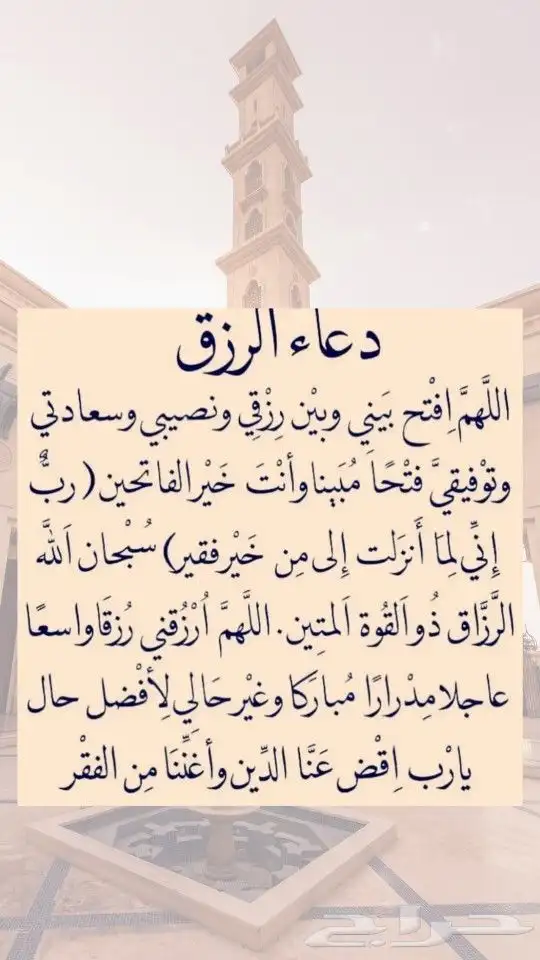 دعاء الرزق
اللَّهمَّ اِفْتح بَيَني وبيْن رِزْقِي ونصيبي وسعادتي
وتوْفيقيَّ فتْحًا مُبَينا وأنْتَ خَيْر الفاتحين (ربٌّ
إِنِّي لِمَا أَنزَلت إلى مِن خَيْر فقير) سُبْحان اَللَّه
الرَّزَّاق ذُو اَلقُوة اَلمتِين. اللَّهمَّ اُرْزُقني رُزقَا واسعًا
عاجلا مِدْرارًا مُبارَكا وغيْر حَالِي لِأفْضل حال
يارْب اِقْض عَنَّا الدِّين وأغنَّنَا مِن الفقْر
حراج